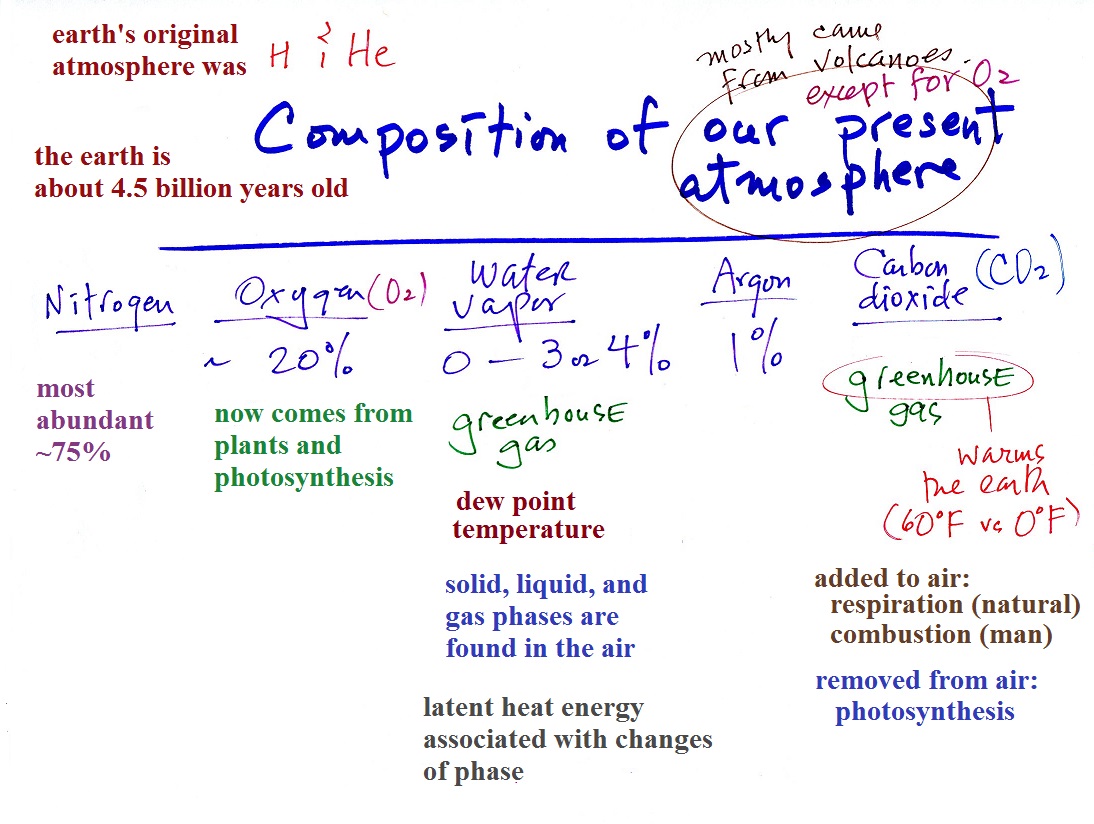 earth's original
atmosphere was H & He
mostly came
from volcanoes.
except for O2
Composition of our present
atmosphere
the earth is
about 4.5 billion years old
Nitrogen
most
abundant
~75%
Oxygen (O2)
~ 20%
now comes from
plants and
photosynthesis
Water
vapor
0 – 3 or 4%
greenhouse
gas
dew point
temperature
solid, liquid, and
gas phases are
found in the air
latent heat energy
associated with changes
of phase
Argon
1%
Carbon
dioxide (CO2)
greenhouse
gas
warms
the earth
(60°F vs 0°F)
added to air:
respiration (natural)
combustion (man)
removed from air:
photosynthesis